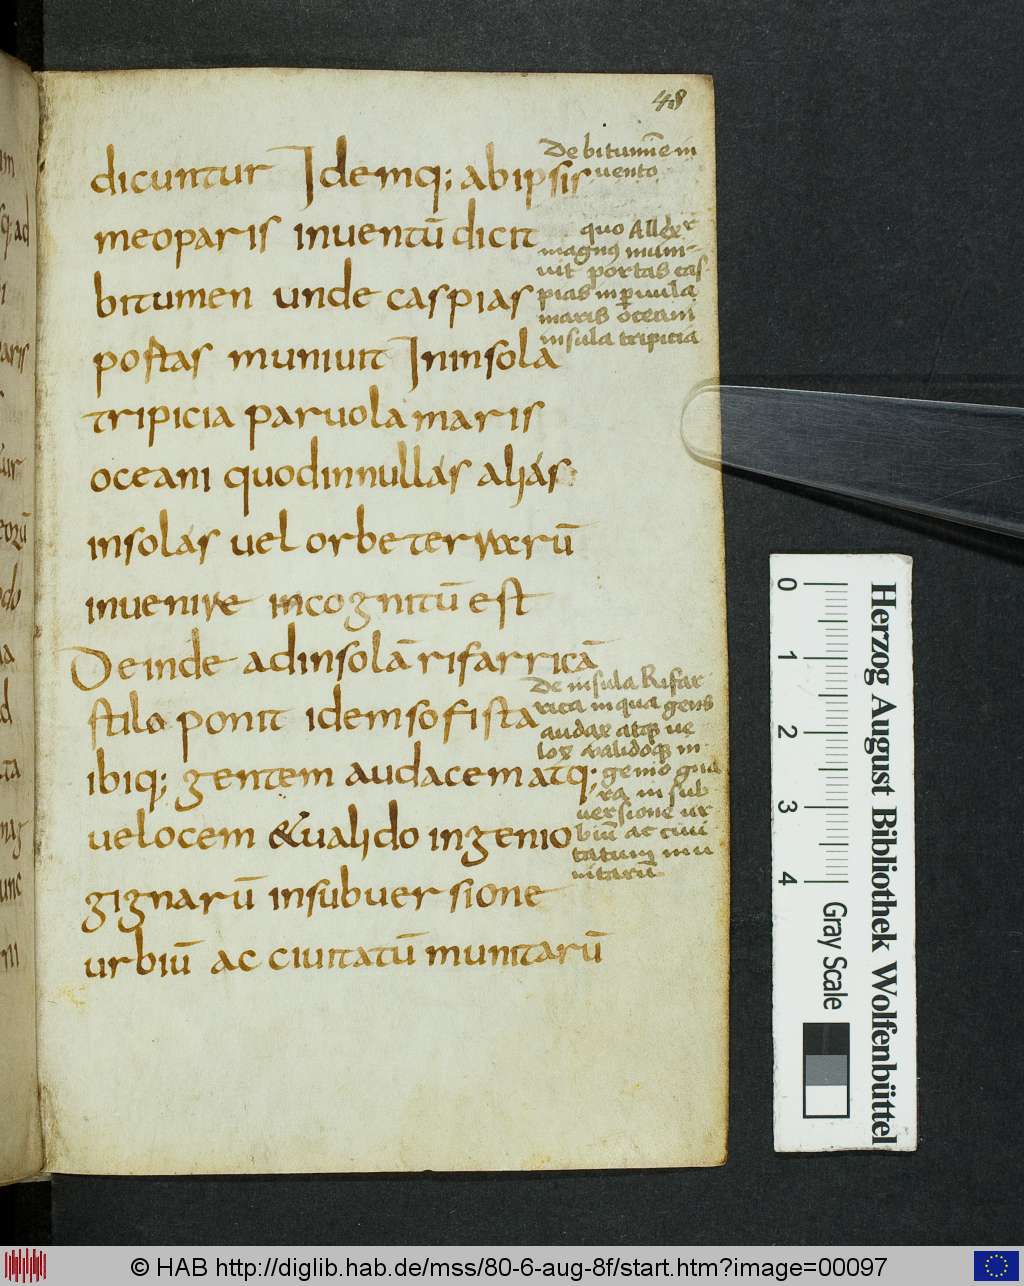 48
dicuntur Idemq; abipsis
meoparis inventū dicit
bitumen unde caspias
postas muniuit Ininsola
tripicia paruola maris
oceani quodinnullas alias
insolas uel orbe terrarū
inuenire incognitū est
Deinde adinsolā rifarricā
stilo ponit idem sofista
ibiq; gentem audacem atq;
uelocem &ualido ingenio
gignarū insubuersione
urbiū ac ciuitatū munitarū
De bitumīe in
uento
quo Allexr̄
magnus muni
uit portas cas
pias in ꝑuula
maris oceani
insula tripicia
De insula Rifar
rica in qua gens
audax atqꝫ ue
lox validoqꝫ in
genio gna
ra in sub
uersione ur
biū ac ciui
tatum mu
nitarū
Herzog August Bibliothek Wolfenbüttel
0
1
2
3
4
Gray Scale
© HAB http://diglib.hab.de/mss/80-6-aug-8f/start.htm?image=00097